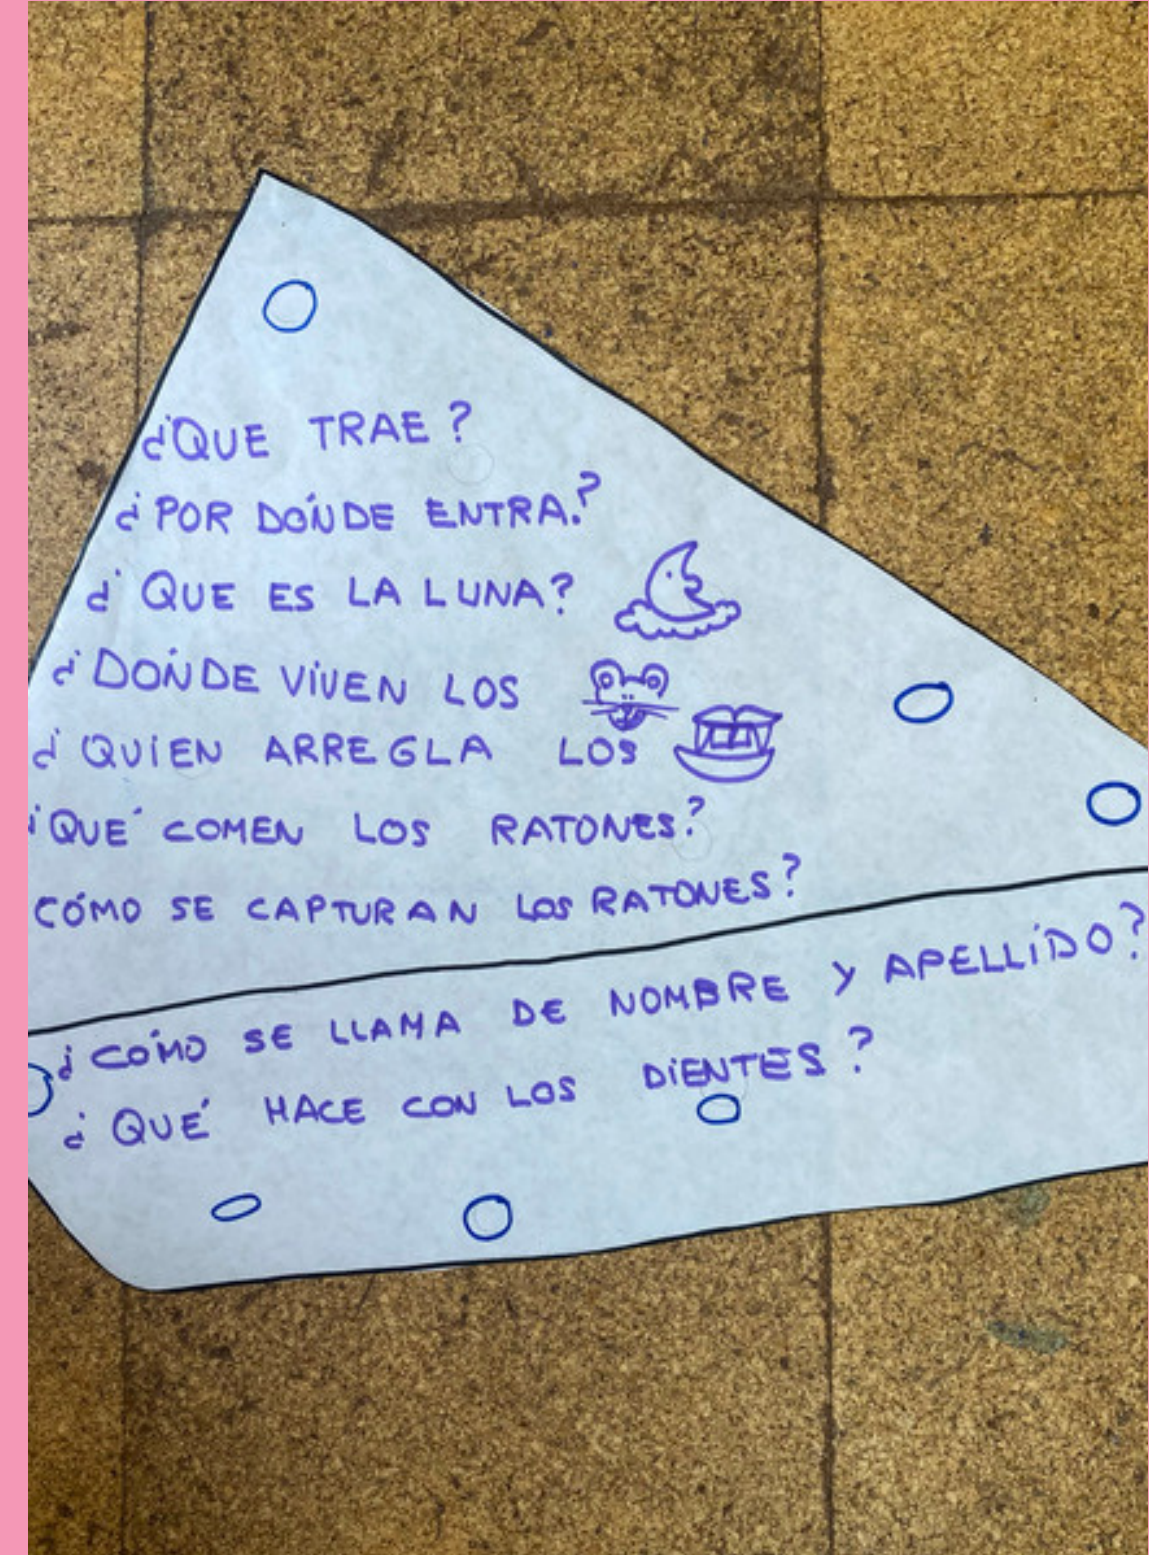 ¿QUE TRAE?
¿POR DÓNDE ENTRA.?
¿QUE ES LA LUNA?
¿DÓNDE VIVEN LOS
¿QUIEN ARREGLA LOS
¿QUÉ COMEN LOS RATONES?
CÓMO SE CAPTURAN LOS RATONES?
¿CÓMO SE LLAMA DE NOMBRE Y APELLIDO?
¿QUÉ HACE CON LOS DIENTES?